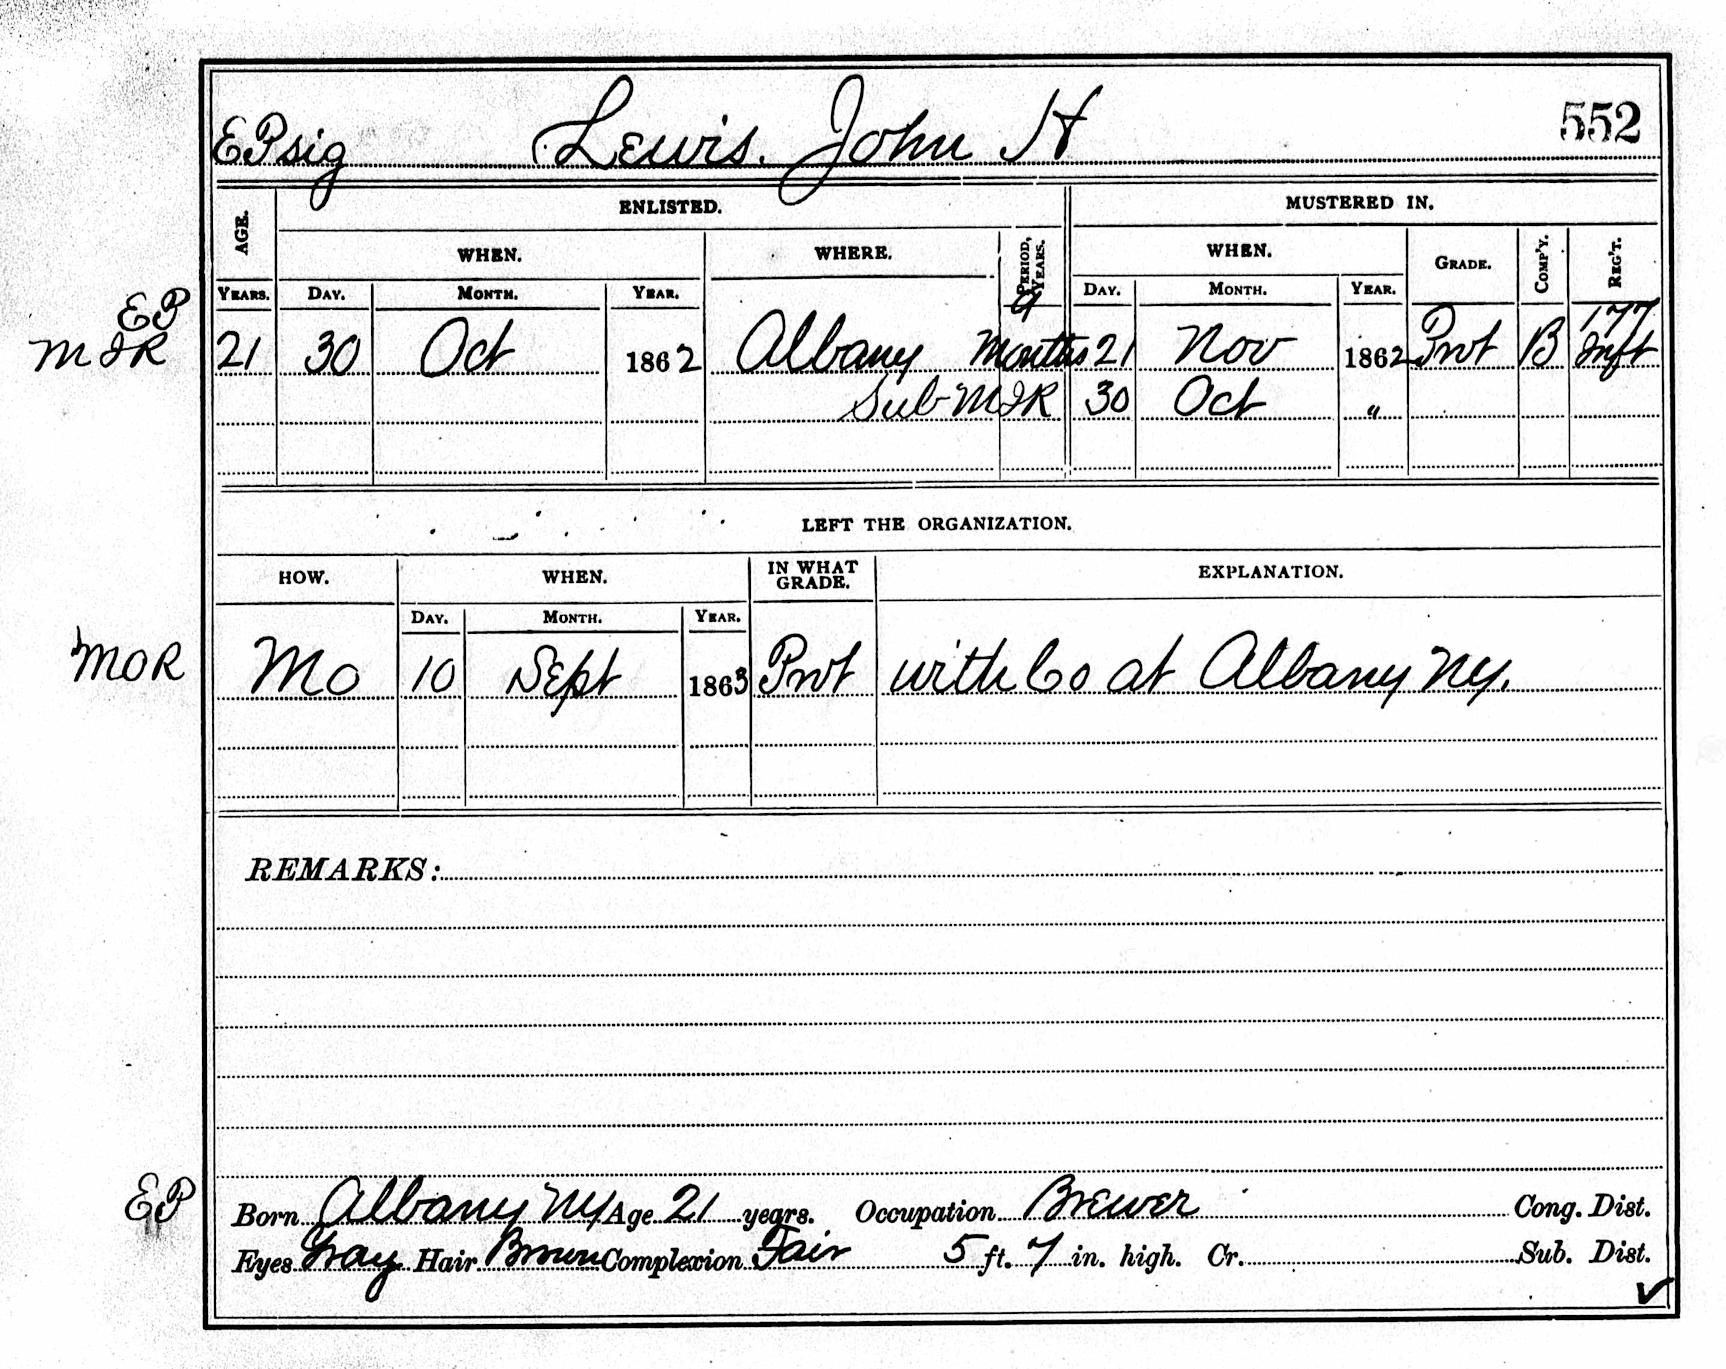 EPsig Lewis. John H 552
AGE. ENLISTED. MUSTERED IN.
WHEN. WHERE. PERIOD, YEARS. WHEN. GRADE. COMP'Y. REG'T.
YEARS. DAY. MONTH. YEAR. DAY. MONTH. YEAR.
EP 9 177
M I R 21 30 Oct 1862 Albany Months 21 Nov 1862 Pvt B Inft
Sub M I R 30 Oct "
LEFT THE ORGANIZATION.
HOW. WHEN. IN WHAT GRADE. EXPLANATION.
DAY. MONTH. YEAR.
MOR Mo 10 Sept 1863 Pvt with Co at Albany NY.
REMARKS:
EP Born Albany NY Age 21 years. Occupation Brewer Cong. Dist.
Eyes Gray Hair Brown Complexion Fair 5 ft. 7 in. high. Cr. Sub. Dist.